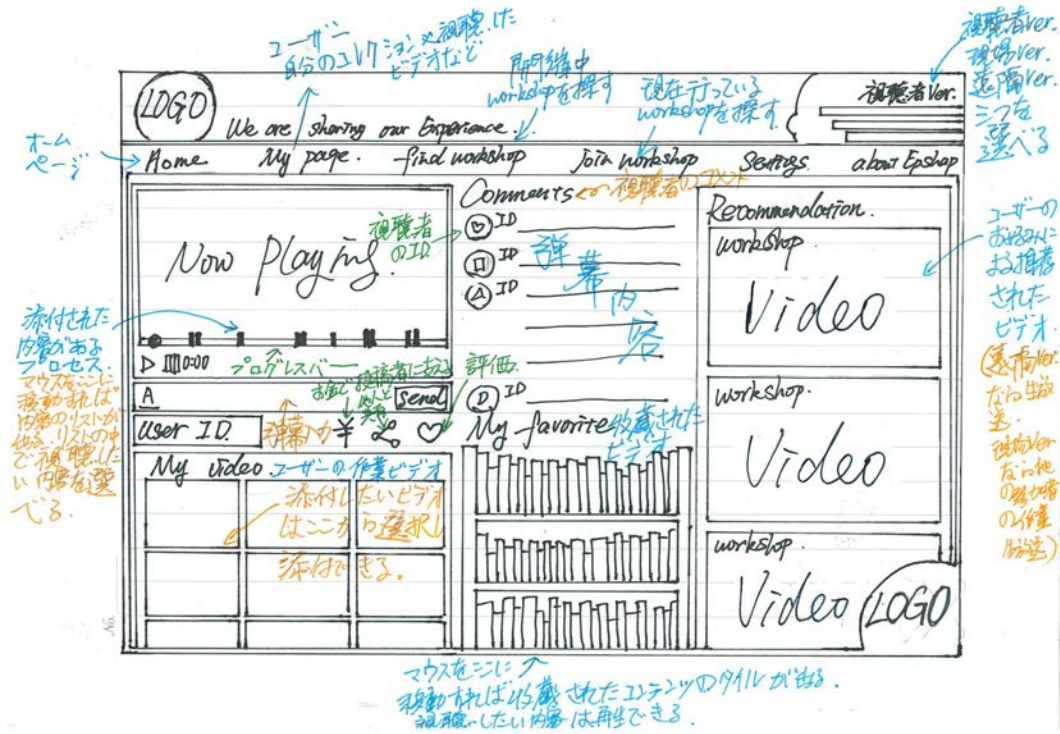 ユーザー
自分のコレクションや視聴した
ビデオなど
開催中
workshopを探す
現在行っている
workshopを探す
視聴者ver.
現場ver.
遠隔ver.
三つを
選べる
LOGO
We are sharing our Experience.
視聴者Ver.
ホーム
ページ
Home
My page.
find workshop
Join workshop
Settings
about Epshop
Now Playing
視聴者
のID
Comments
視聴者のコメント
ID
ID
ID
弾幕内容
ID
Recommendation.
workshop
Video
workshop.
Video
workshop.
Video
LOGO
ユーザーの
お好みに
より推薦
された
ビデオ.
(遠隔ver.
なら生放
送.
現場ver
なら他
の参加者
の作業
添付された
内容がある
プロセス.
マウスをここに
移動すれば
内容のリストが
出る.リストの中
で視聴した
い内容を選
べる.
0:00
プログレスバー
評価.
お金で投稿者に与える
他人と
共有
A
send
User ID.
弾幕入力
¥
My video.
ユーザーの作業ビデオ
添付したいビデオ
はここから選択し
添付できる.
My favorite
収蔵された
ビデオ
No.
マウスをここに
移動すれば収蔵されたコンテンツのタイルが出る.
視聴したい内容は再生できる.